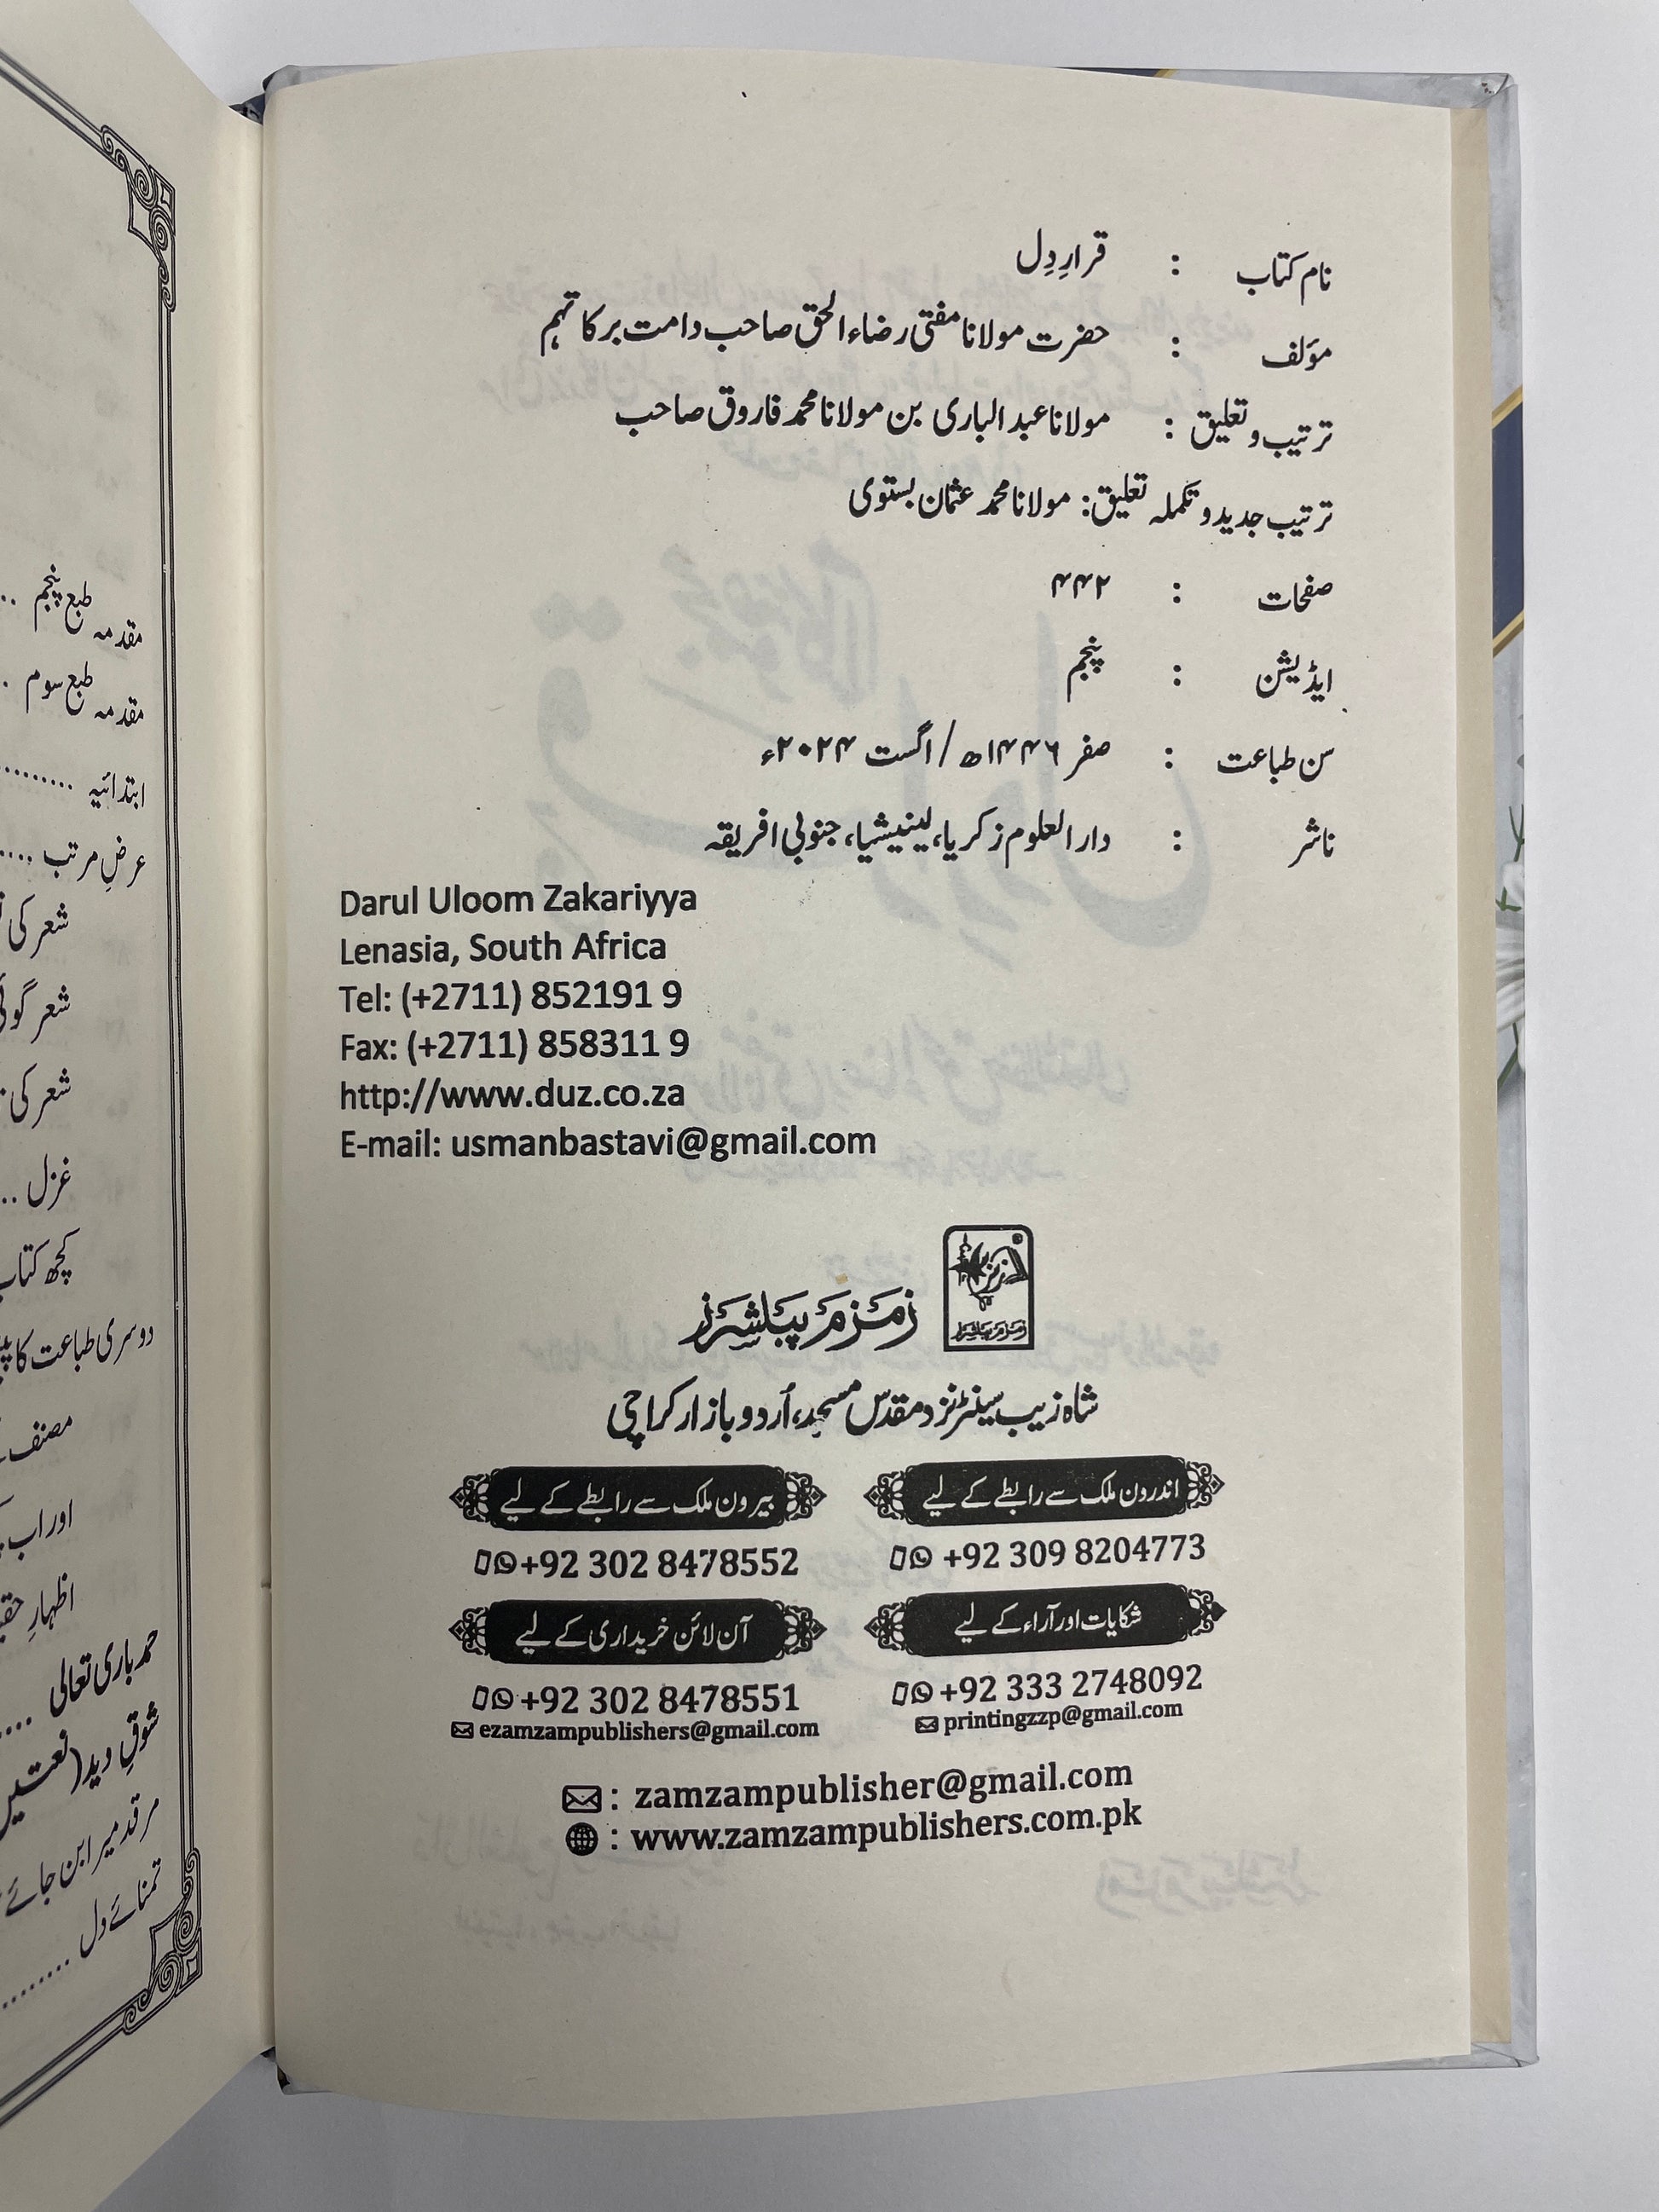 نام کتاب : قرارِ دِل
مؤلف : حضرت مولانا مفتی رضاء الحق صاحب دامت برکاتہم
ترتیب و تعلیق : مولانا عبد الباری بن مولانا محمد فاروق صاحب
ترتیب جدید و تکملہ تعلیق: مولانا محمد عثمان بستوی
صفحات : ۴۴۲
ایڈیشن : پنجم
سن طباعت : صفر ۱۴۴۶ھ / اگست ۲۰۲۴ء
ناشر : دار العلوم زکریا، لینیشیا، جنوبی افریقہ
Darul Uloom Zakariyya
Lenasia, South Africa
Tel: (+2711) 852191 9
Fax: (+2711) 858311 9
http://www.duz.co.za
E-mail: usmanbastavi@gmail.com
زمزم پبلشرز
زمزم پبلشرز
شاہ زیب سینٹر نزد مقدس مسجد، اُردو بازار کراچی
اندرون ملک سے رابطے کے لیے
+92 309 8204773
بیرون ملک سے رابطے کے لیے
+92 302 8478552
شکایات اور آراء کے لیے
+92 333 2748092
printingzzp@gmail.com
آن لائن خریداری کے لیے
+92 302 8478551
ezamzampublishers@gmail.com
: zamzampublisher@gmail.com
: www.zamzampublishers.com.pk
مقدمہ طبع پنجم ..
مقدمہ طبع سوم .
ابتدائیہ ........
عرضِ مرتب .....
شعر کی
شعر گوئی
شعر کی
غزل ..
کچھ کتاب
دوسری طباعت کا
مصنف
اور اب
اظہارِ
حمد باری تعالی ....
شوقِ دید (نعتیں
مرقد میرا بن جائے
تمنائے دل ........